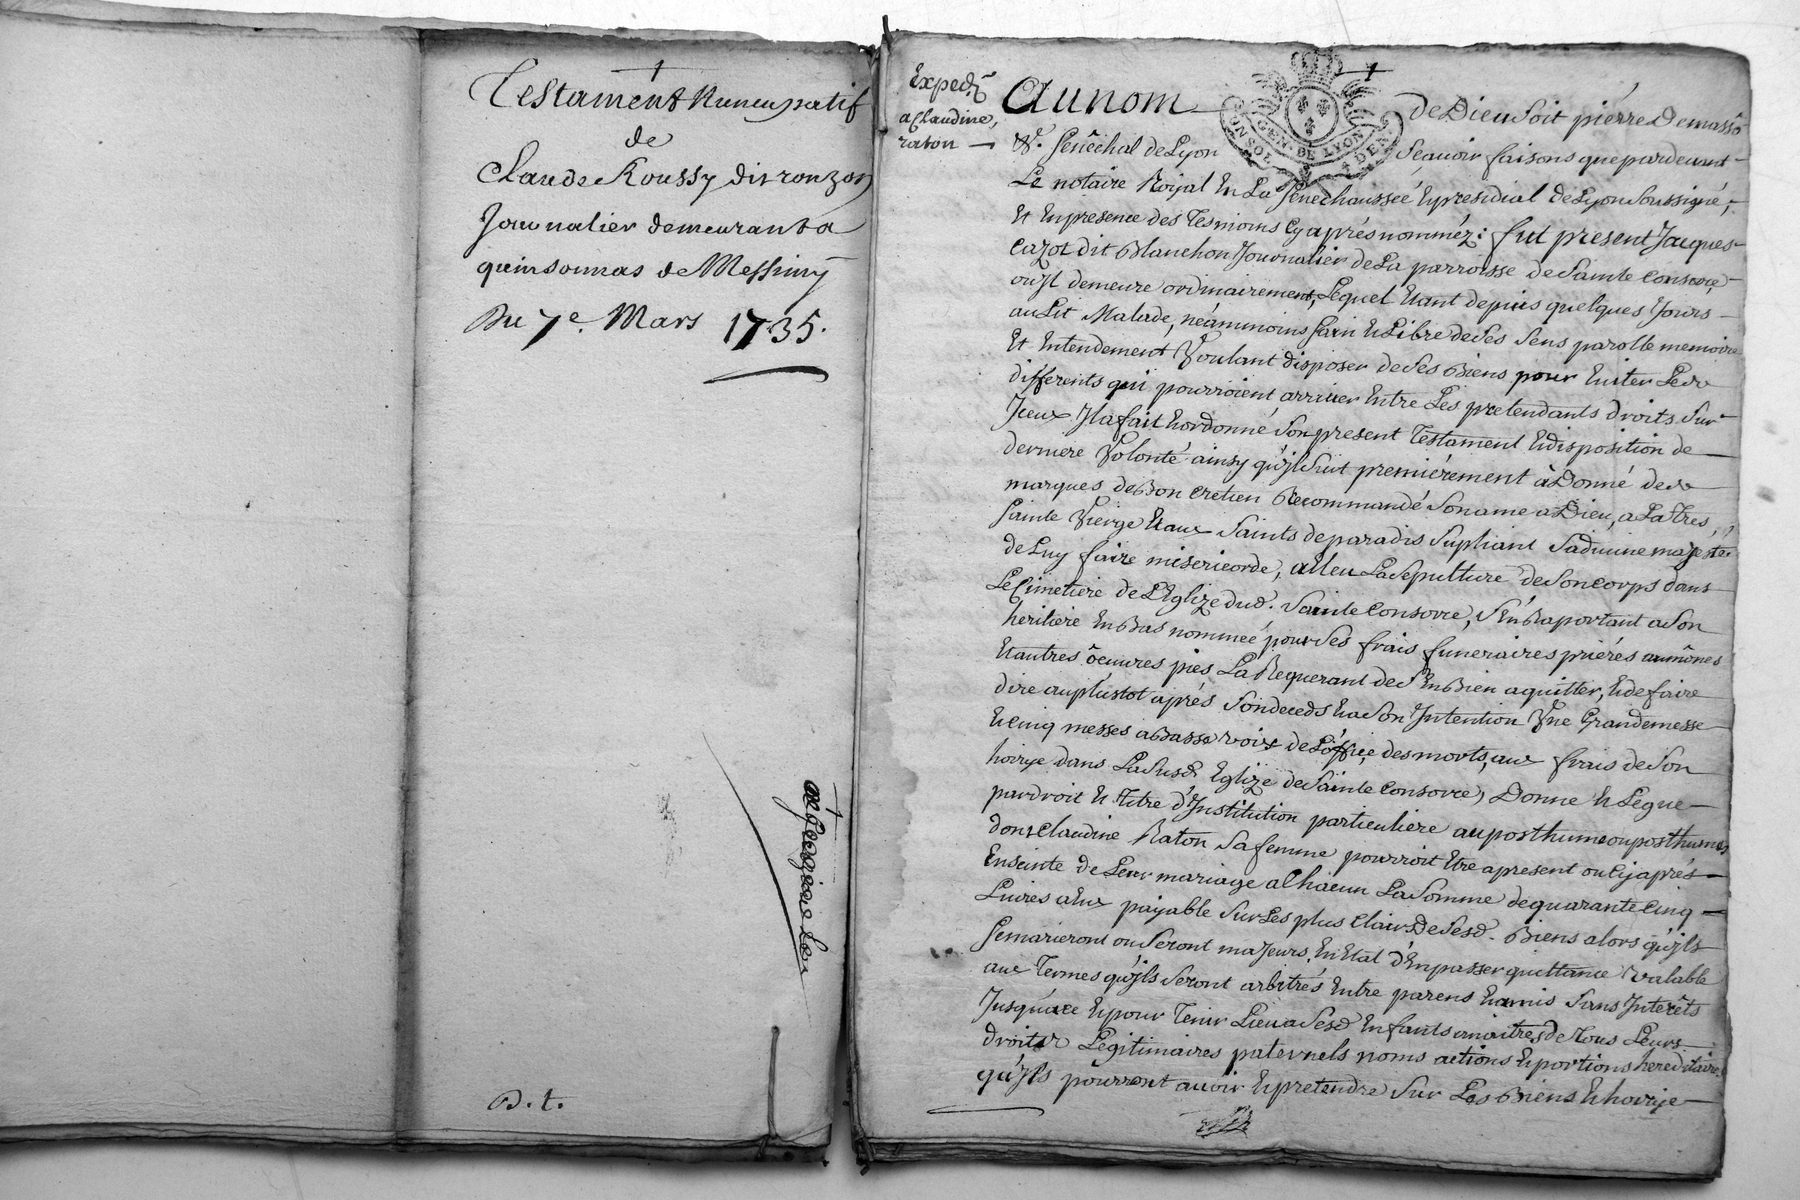 Testament Nuncupatif
de
Claude Roussy dit ronzon
Journalier demeurant a
quinsonnas de Messimy
Du 7e. Mars 1735.
B. t.
Exped.
a Claudine
raton
Au nom de Dieu soit pierre De masso
Senêchal de Lyon Sçavoir faisons que pardevant
Le notaire Royal En La Senechaussée & presidial de Lyon Soussigné,
Et En presence des Tesmoins Cy aprés nommez: fut present Jacques
Cazot dit Blanchon Journalier de La parroisse de Sainte Consorce,
ou Jl demeure ordinairement, Lequel Etant depuis quelques Jours
au Lit Malade, neámmoins Sain & Libre de Ses Sens parolle memoire
Et Entendement Voulant disposer de Ses Biens pour Eviter Les
differents qui pourroient arriver Entre Les pretendants droits Sur
Jceux Jl a fait & ordonné Son present Testament & disposition de
derniere Volonté ainsy qu'jl Suit premiérement à Donné des
marques de Bon Cretien Recommandé Son ame a Dieu, a La Trés
Sainte Vierge & aux Saints de paradis Supliant Sa divine majesté
de Luy faire misericorde, a Eleu La Sepulture de Son corps dans
Le Cimetiere de L'Eglize dud. Sainte Consorce, S'en Raportant a Son
heritiere En Bas nommeé pour Ses frais funeraires priérés aumônes
& autres ôeuvres pies La Requerant de S'En Bien aquitter, & de faire
dire au plustot aprés Son deceds & a Son Jntention Vne Grande messe
& Cinq messes a Basse voix de L'office des morts, aux frais de Son
hoirye dans La Susd. Eglize de Sainte Consorce, Donne & Legue
par droit & Titre d'Jnstitution particuliere au posthume ou posthumes
dont Claudine Raton Sa femme pourroit Etre apresent ou Cy aprés
Enseinte de Leur mariage a Chacun La Somme de quarante Cinq
Livres a Eux payable Sur Les plus Clairs de Sesd. Biens alors qu'jls
Se marieront ou Seront majeurs, En Etat d'En passer quittance valable
aux Termes qu'jls Seront arbitrés Entre parens & amis Sans Jnterêts
Jusqu'a ce & pour Tenir Lieu a Sesd. Enfants a naitre de Tous Leurs
droits Legitimaires paternels noms actions & portions hereditaires
qu'jls pourront avoir & pretendre Sur Les Biens & hoirye